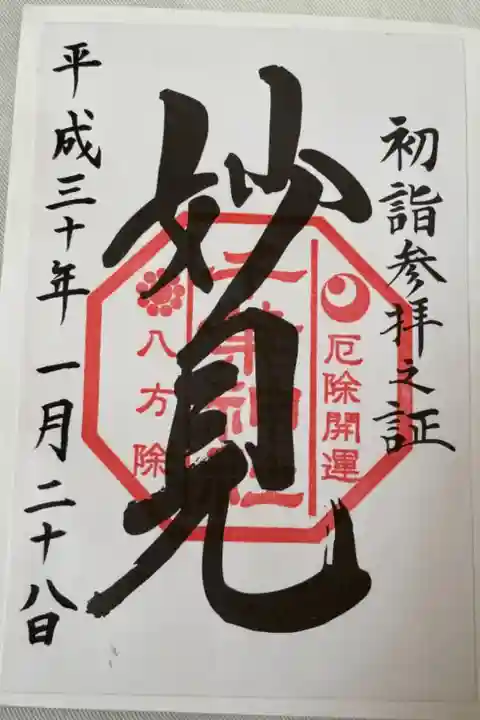 初詣参拝之証
妙見
厄除開運
八方除
平成三十年一月二十八日